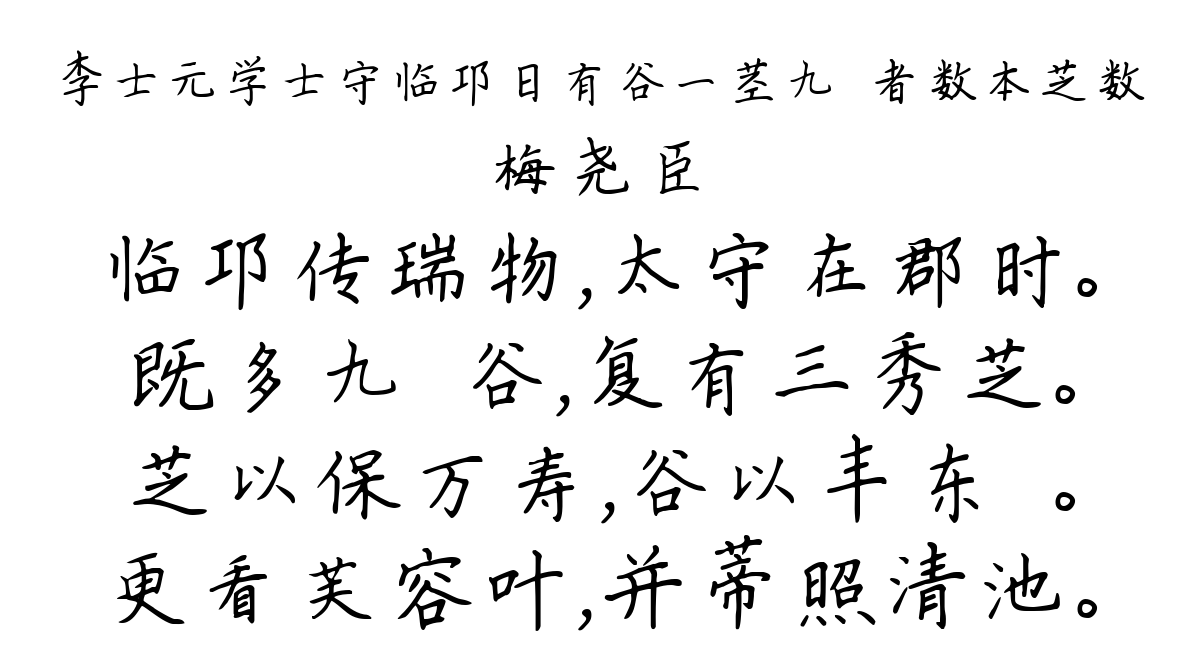 李士元学士守临邛日有谷一茎九 者数本芝数
梅尧臣
临邛传瑞物,太守在郡时。
既多九 谷,复有三秀芝。
芝以保万寿,谷以丰东 。
更看芙容叶,并蒂照清池。